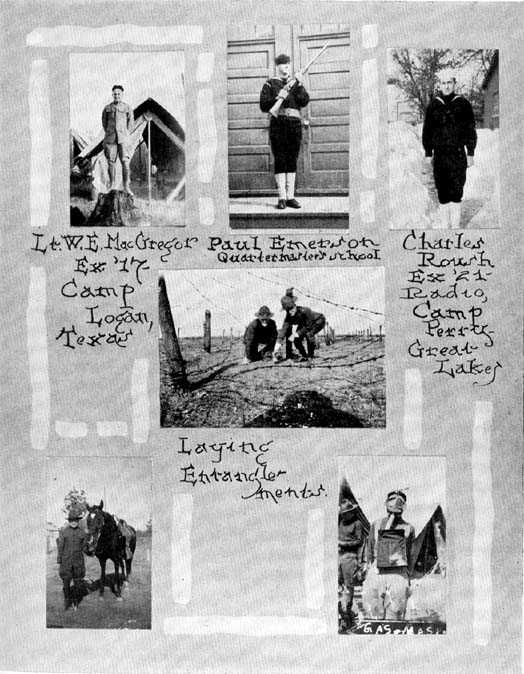 Lt. W. E. MacGregor
Ex '17
Camp
Logan,
Texas
Paul Emerson
Quartermasters school
Charles
Roush
Ex '21-
Radio,
Camp
Perry-
Great
Lakes
Laying
Entangle
ments.
GAS-MASK